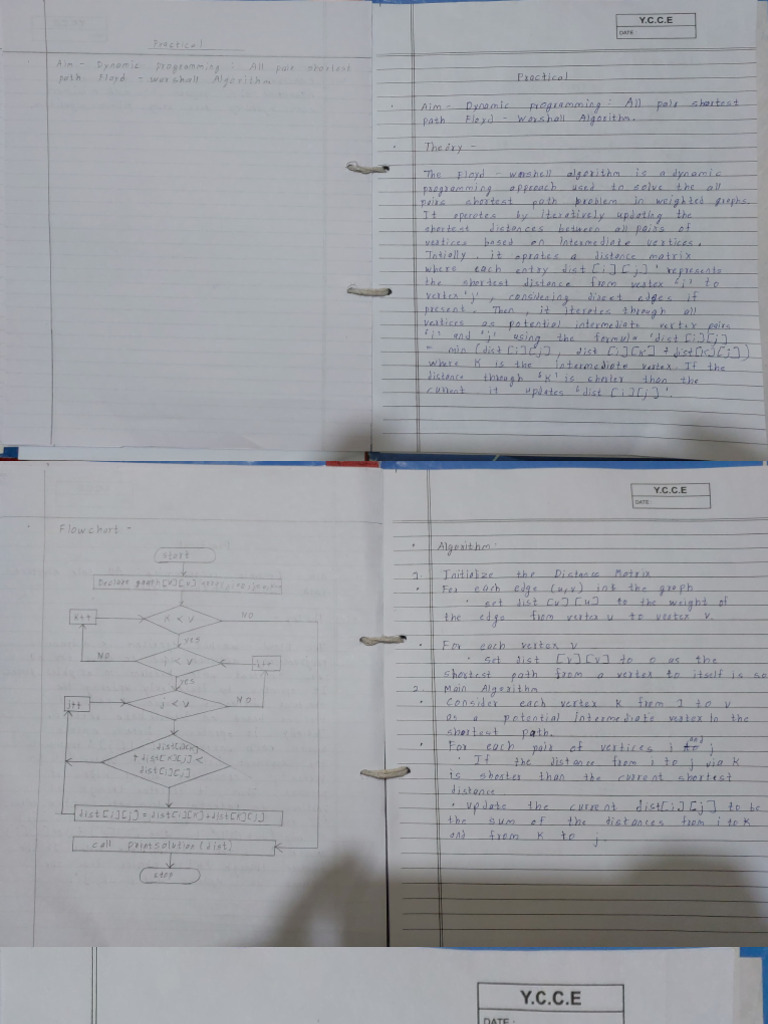 Practical
Aim - Dynamic programming : All pair shortest
path Floyd - warshall Algorithm
Y.C.C.E
DATE :
Practical
Aim - Dynamic programming : All pair shortest
path Floyd - Warshall Algorithm.
Theory -
The Floyd - warshell algorithm is a dynamic
programming approach used to solve the all
pairs shortest path problem in weighted graphs.
It operates by iteratively updating the
shortest distances between all pairs of
vertices based on intermediate vertices.
Intially, it oprates a distance matrix
where each entry dist [i][j]' represents
the shortest distance from vertex 'i' to
vertex 'j', considering direct edges if
present. Then, it iterates through all
vertices as potential intermediate vertex pairs
'i' and 'j' using the formula 'dist [i][j]
= min (dist [i][j], dist [i][k] + dist[k][j])
where K is the intermediate vertex. If the
distance through 'K' is shorter than the
current it updates 'dist [i][j]'.
Flowchart -
start
Declare graph[v][v]
k++
k < v
NO
yes
NO
i < v
i++
yes
j++
j < v
NO
+ dist[k][j] <
dist[i][j]
dist[i][j] = dist[i][k] + dist[k][j]
call printsolution (dist)
stop
Y.C.C.E
DATE :
Algorithm:
1. Initialize the Distance Matrix
For each edge (u,v) in the graph
set dist [v][u] to the weight of
the edge from vertex u to vertex v.
For each vertex v
set dist [v][v] to 0 as the
shortest path from a vertex to itself is so
2. Main Algorithm
Consider each vertex k from 1 to v
as a potential intermediate vertex in the
shortest path.
For each pair of vertices i and j
If the distance from i to j via k
is shorter than the current shortest
distance
update the current dist[i][j] to be
the sum of the distances from i to k
and from k to j.
Y.C.C.E
DATE :